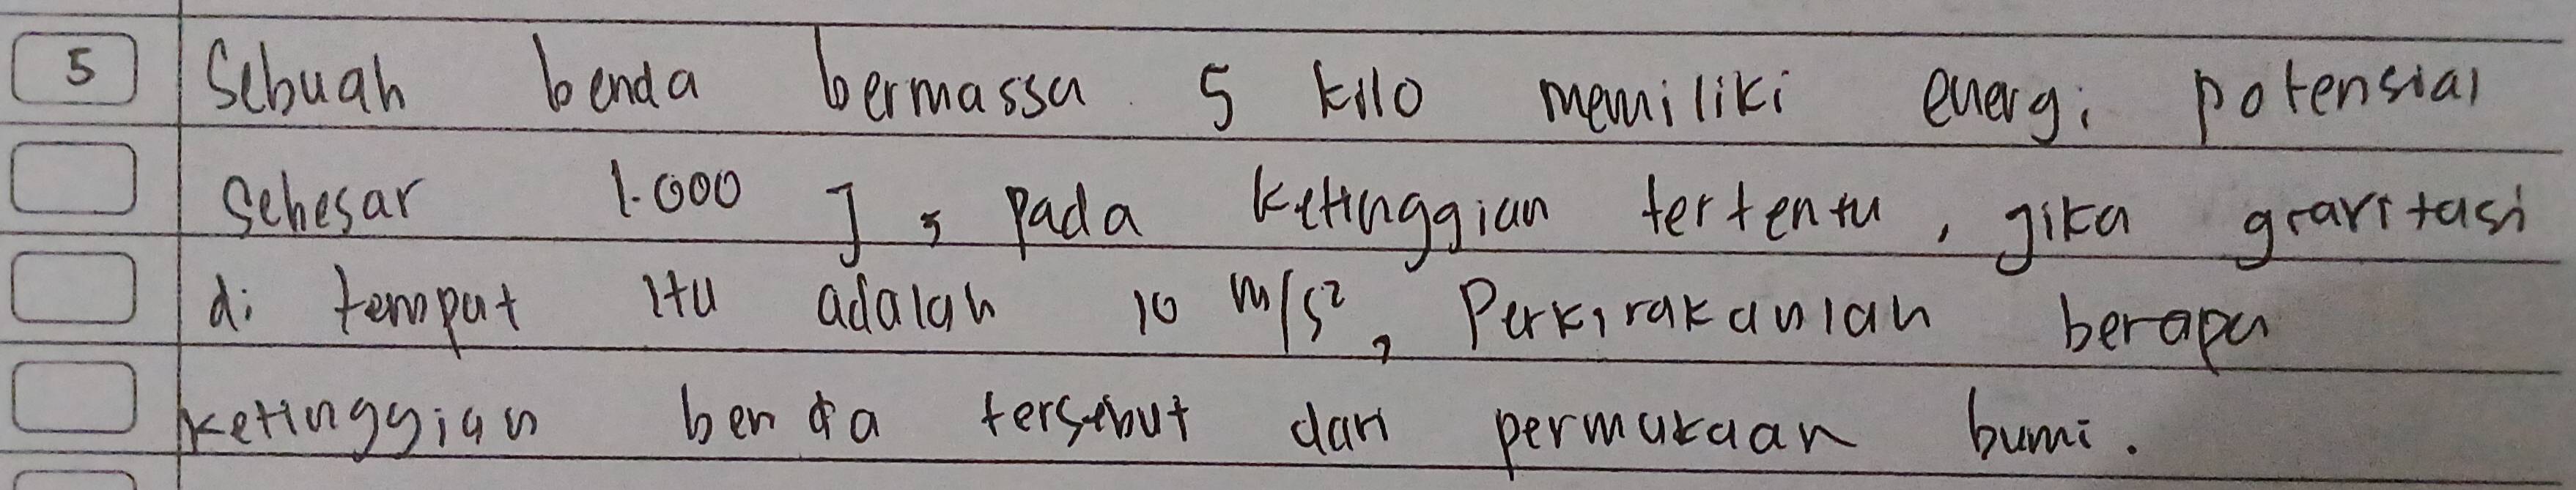 5 Sebuah benda bermassa 5 kilo memiliki energi potensial
Sebesar 1.000 J, pada ketinggian tertentu, jika gravitasi
di tempat itu adalah 10 m/s², Perkirakanlah berapa
ketinggian benda tersebut dari permukaan bumi.